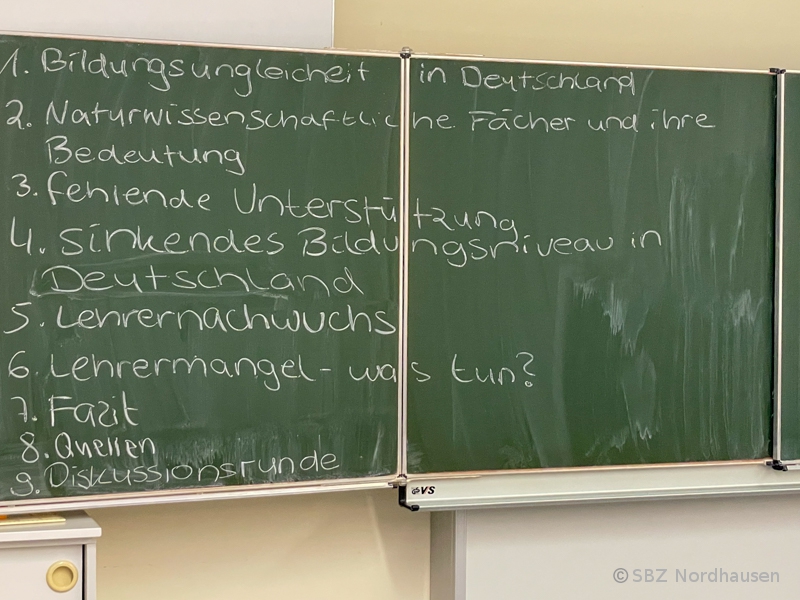 1. Bildungsungleicheit in Deutschland
2. Naturwissenschaftliche Fächer und ihre
Bedeutung
3. fehlende Unterstützung
4. sinkendes Bildungsniveau in
Deutschland
5. Lehrernachwuchs
6. Lehrermangel - was tun?
7. Fazit
8. Quellen
9. Diskussionsrunde
VS
© SBZ Nordhausen